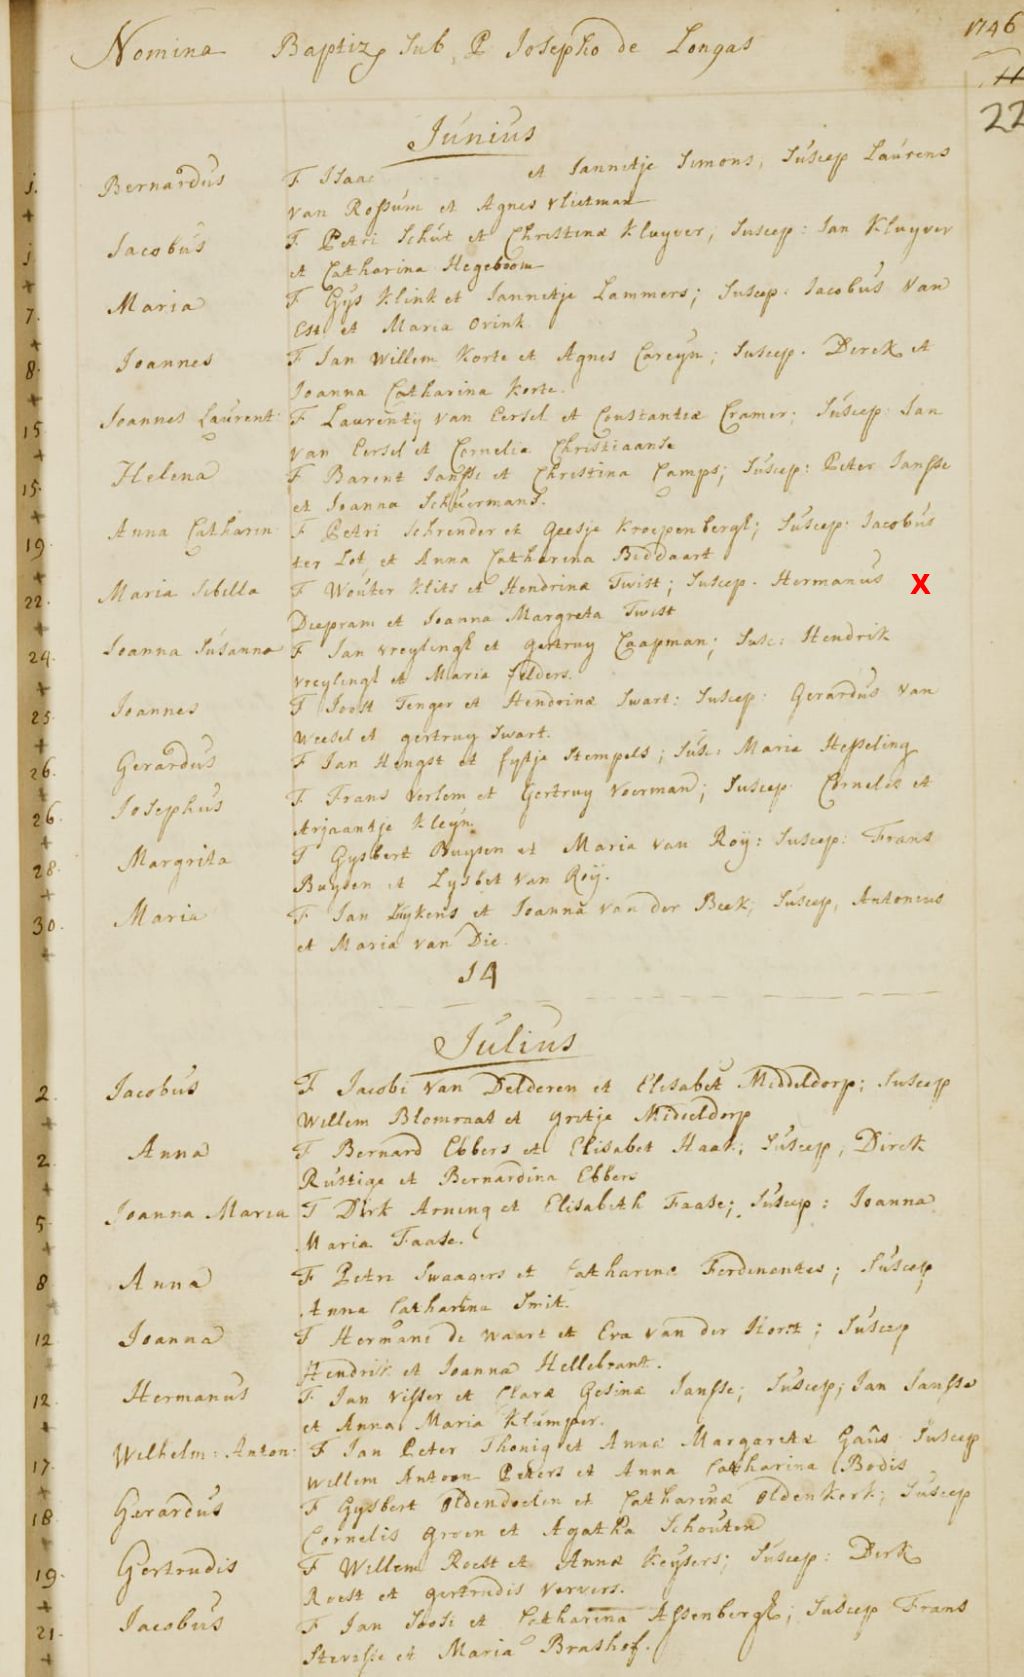 1746
Nomina Baptiz Sub P Josepho de Longas
11
22
Junius
1. Bernardus F Isaac et Jannitje Simons, Suscep Laurens
+ van Rossum et Agnes Vlietman
1 Jacobus F Petri Schut et Christinæ Kluyver; Suscep: Jan Kluyver
+ et Catharina Hegeboom
7. Maria F Gys Klink et Jannitje Lammers; Suscep: Jacobus Van
+ Est et Maria Orink
8. Joannes F Jan Willem Korte et Agnes Careyn; Suscep. Derck et
+ Joanna Catharina Korte.
15 Joannes Laurent F Laurentij Van Eersel et Constantiæ Cramer; Suscep: Jan
+ Van Eersel et Cornelia Christiaanse
15. Helena F Barent Jansse et Christina Camps; Suscep: Peter Jansse
+ et Joanna Schuermans.
19 Anna Catharin F Petri Schrender et Geesje Kroepenbergh; Suscep: Jacobus
+ ter Lot, et Anna Catharina Biddaart
22. Maria Sibilla F Wouter Klits et Hendrinæ Twist; Suscep. Hermanus X
+ Diepram et Joanna Margreta Twist
24. Joanna Susanna F Jan Vreylingh et Gertruy Caapman; Susc: Hendrik
+ Vreylingh et Maria Felders.
25. Joannes F Joost Tenger et Hendrinæ Swart: Suscep: Gerardus Van
+ Weesel et Gertruy Swart.
26. Gerardus F Jan Hengst et Fytje Stempels; Sus: Maria Hesseling
+
26. Josephus F Frans Verlem et Gertruy Voerman; Suscep Cornelis et
+ Arjaantje Kleyn.
28. Margrita F Gysbert Buysen et Maria van Roÿ: Suscep: Frans
+ Buysen et Lysbet Van Roÿ.
30. Maria F Jan Luykens et Joanna van der Beek; Suscep, Antonius
+ et Maria van Die.
14
Julius
2. Jacobus F Jacobi Van Delderen et Elisabet Middeldorp; Suscep
+ Willem Blomraat et Gretje Middeldorp
2. Anna F Bernard Ebbers et Elisabet Haak; Suscep, Dirck
+ Rustige et Bernardina Ebbers
5. Joanna Maria F Dirk Arning et Elisabeth Faase; Suscep: Joanna
+ Maria Faase.
8 Anna F Petri Swaagers et Catharinæ Ferdinentes; Suscep
+ Anna Catharina Smit.
12 Joanna F Hermani de Waart et Eva van der Horst; Suscep
+ Hendrik et Joanna Hellebrant.
12. Hermanus F Jan Visser et Claræ Gesinæ Jansse; Suscep; Jan Jansse
+ et Anna Maria Klumper.
17. Wilhelm: Anton: F Jan Peter Thonig et Annæ Margaretæ Gaûs Suscep
+ Willem Antoon Peters et Anna Catharina Bodis
18. Gerardus F Gysbert Oldendoelen et Catharinæ Oldenkerk; Suscep
+ Cornelis Groen et Agatha Schouten
19. Gertrudis F Willem Roest et Annæ Keysers; Suscep: Derk
+ Roest et Gertrudis Ververs.
21. Jacobus F Jan Joosi et Catharina Assenbergh; Suscep Frans
+ Stevesse et Maria Brashof.